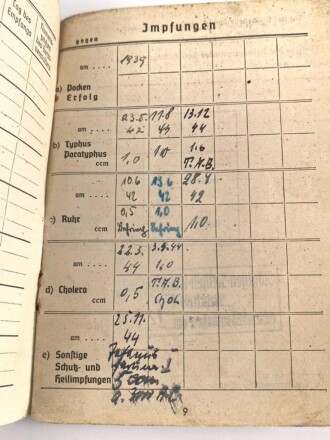 Tag des
Empfangs
Impfungen
gegen
am .... 1939
a) Pocken
Erfolg
23.5. 11.8 13.12
am .... 42 44 44
b) Typhus
Paratyphus 1,0 1,0 1,0
ccm T.A.B.
10.6 13.6 28.7
am .... 42 42 42
c) Ruhr 0,5 1,0 1,0
ccm Behring Behring
22.3. 3.9.44
am .... 44 1,0
d) Cholera 0,5 T.A.B.
ccm Chol
25.11.
am .... 44
e) Sonstige Tetanus
Schutz- und
Heilimpfungen
9